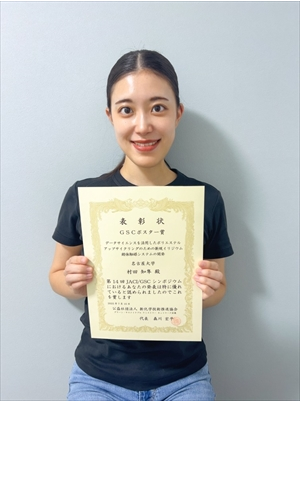 表彰状
GSCポスター賞
データサイエンスを活用したポリエステル
アップサイクリングのための
名古屋大学
村田 和隼 殿
第14回 JACI/GSC シンポジウム
におけるあなたの発表は特に優れ
ていると認められましたのでこれ
を賞します
公益社団法人 新化学技術推進協会
代表 森川 宏平